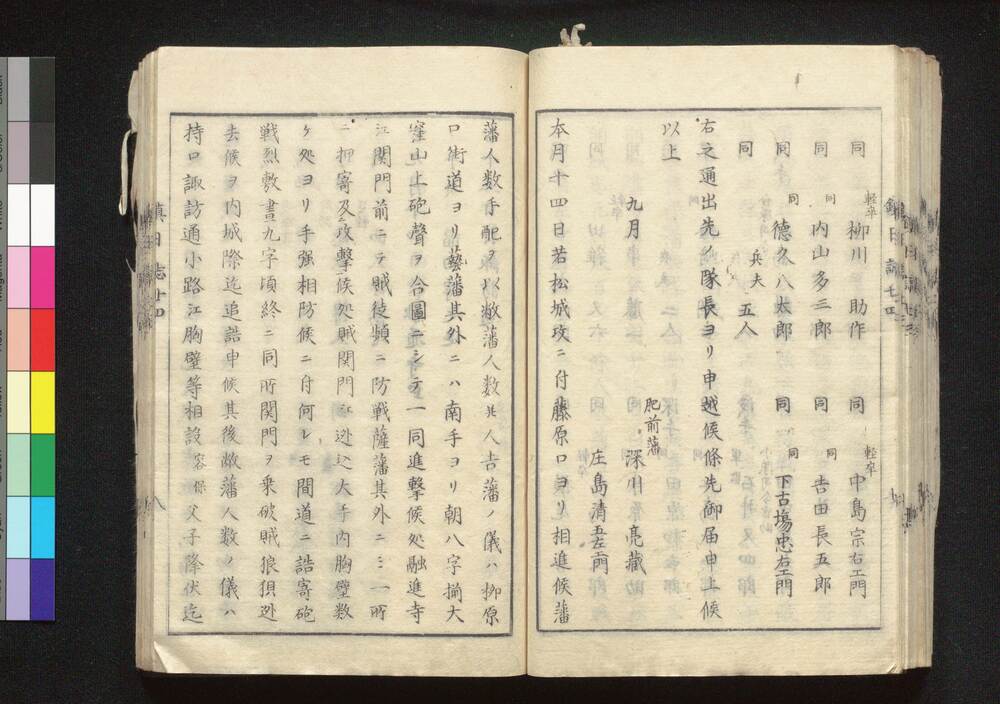 同 軽卒 柳川 助作 同 軽卒 中島宗右エ門
同 同 内山多三郎 同 同 吉田長五郎
同 同 徳久八太郎 同 同 下古場忠右エ門
同 兵夫 五人
右之通出先ノ隊長ヨリ申越候條先御届申上候
以上 肥前藩
九月 深川亮蔵
庄島清五左衛門
本月十四日若松城攻ニ付藤原口ヨリ相進候藩
藩人数手配ヲ以敝藩人数其人吉藩ノ儀ハ柳原
口街道ヨリ藝藩其外ニハ南手ヨリ朝八字揃大
窪山上砲聲ヲ合圖ニシテ一同進撃候処融進寺
江関門前ニテ賊徒頻ニ防戦薩藩其外ニミ一所
ニ押寄及攻撃候処賊関門江迯込大手内胸壁数
ケ処ヨリ手强相防候ニ付何レモ間道ニ詰寄砲
戦烈敷晝九字頃終ニ同所関門ヲ乗破賊狼狽迯
去候ヲ内城際迄追詰申候其後敝藩人数ノ儀ハ
持口諏訪通小路江胸壁等相設容保父子降伏迄
鎮日 志十四 八